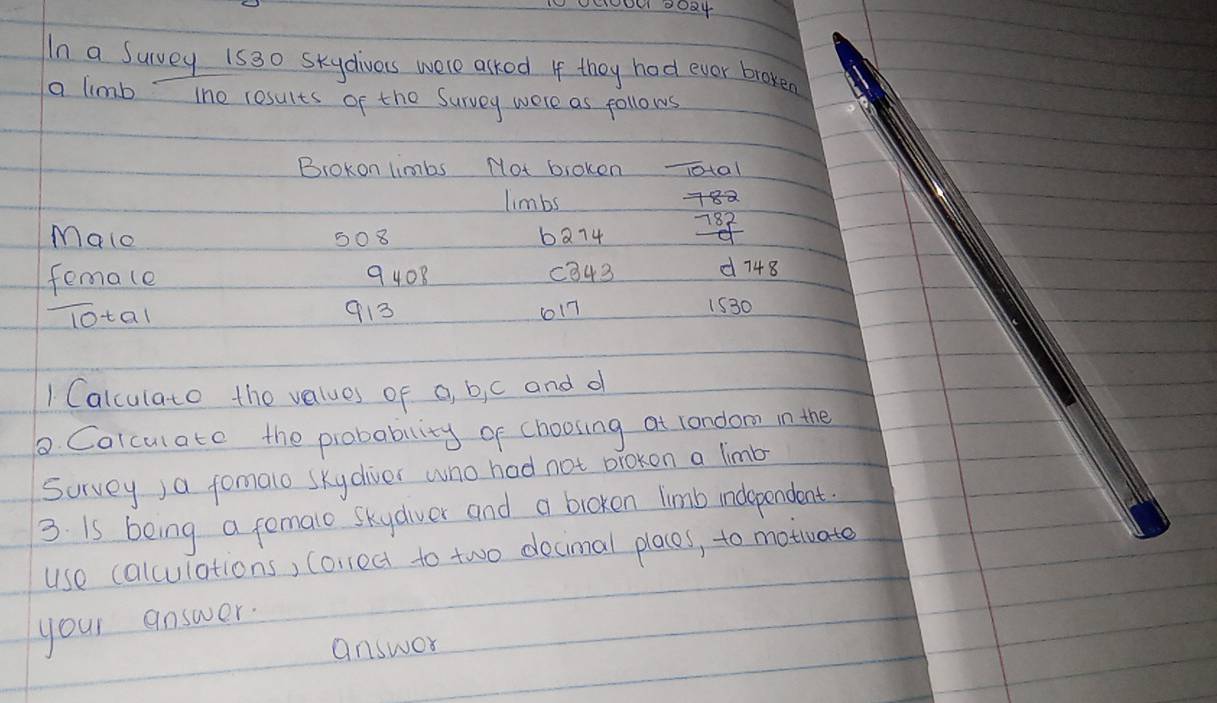 10 October 2024
In a Survey 1530 skydivers were asked if they had ever broken
a limb The results of the survey were as follows
Broken limbs Not broken Total
limbs 782
782
Male 508 b274 d
female a 408 c343 d 748
Total 913 617 1530
1 Calculate the values of a, b, c and d
2. Calculate the probability of choosing at random in the
Survey, a female skydiver who had not broken a limb
3. Is being a female skydiver and a broken limb independent.
use calculations, correct to two decimal places, to motivate
your answer.
answer